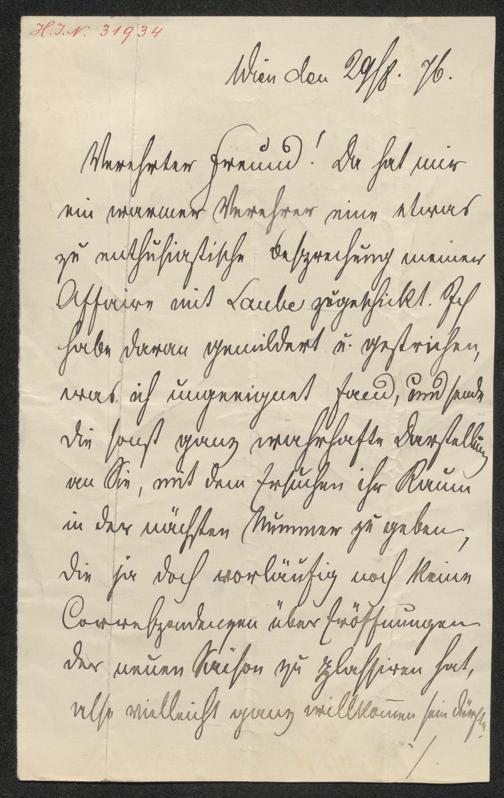 H.I.N. 31934
Wien den 29/8. 76.
Verehrter Freund! Da hat mir
ein warmer Verehrer eine etwas
zu enthusiastische Besprechung meiner
Affaire mit Laube zugeschickt. Ich
habe daran gemildert u. gestrichen,
was ich ungeeignet fand, und sende
die sonst ganz wahrhafte Darstellung
an Sie, mit dem Ersuchen ihr Raum
in der nächsten Nummer zu geben,
die ja doch vorläufig noch keine
Correspondenzen über Eröffnungen
der neuen Saison zu plassiren hat,
also vielleicht ganz willkommen sein dürfte.
./.